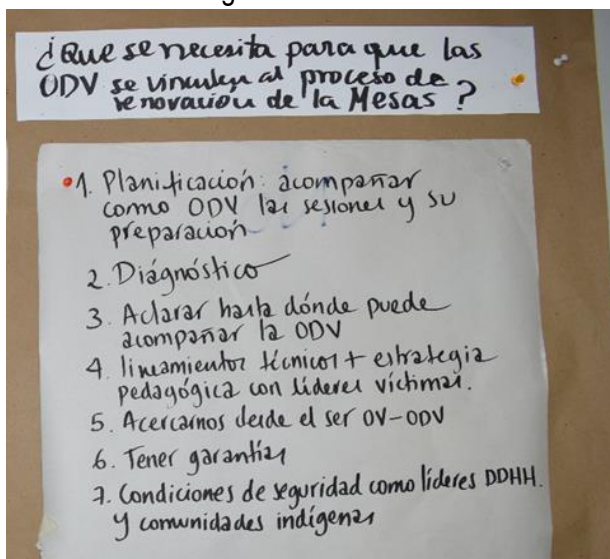 ¿Que se necesita para que las
ODV se vinculen al proceso de
renovación de la Mesas?
1. Planificación: acompañar
como ODV las sesiones y su
preparación
2. Diágnóstico
3. Aclarar hasta dónde puede
acompañar la ODV
4. lineamientos técnicos + estrategia
pedagógica con líderes víctimas.
5. Acercarnos desde el ser OV-ODV
6. Tener garantías
7. Condiciones de seguridad como líderes DDHH.
y comunidades indígenas